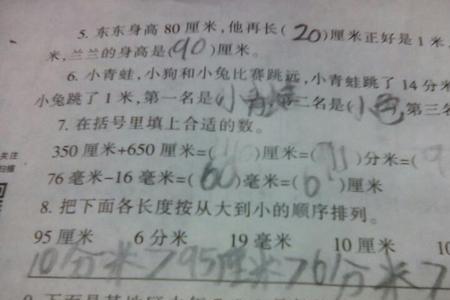 5. 东东身高 80 厘米,他再长(20)厘米正好是 1 米
米,兰兰的身高是(90)厘米。
6. 小青蛙,小狗和小兔比赛跳远,小青蛙跳了 14 分米
小兔跳了 1 米,第一名是(小青蛙 二名是(小 第三名
7. 在括号里填上合适的数。
350 厘米+650 厘米=( )厘米=( )分米=(
76 毫米-16 毫米=(60)毫米=(6)厘米
8. 把下面各长度按从大到小的顺序排列。
95 厘米 6 分米 19 毫米 10 厘米 10
10分米>95厘米>6分米>